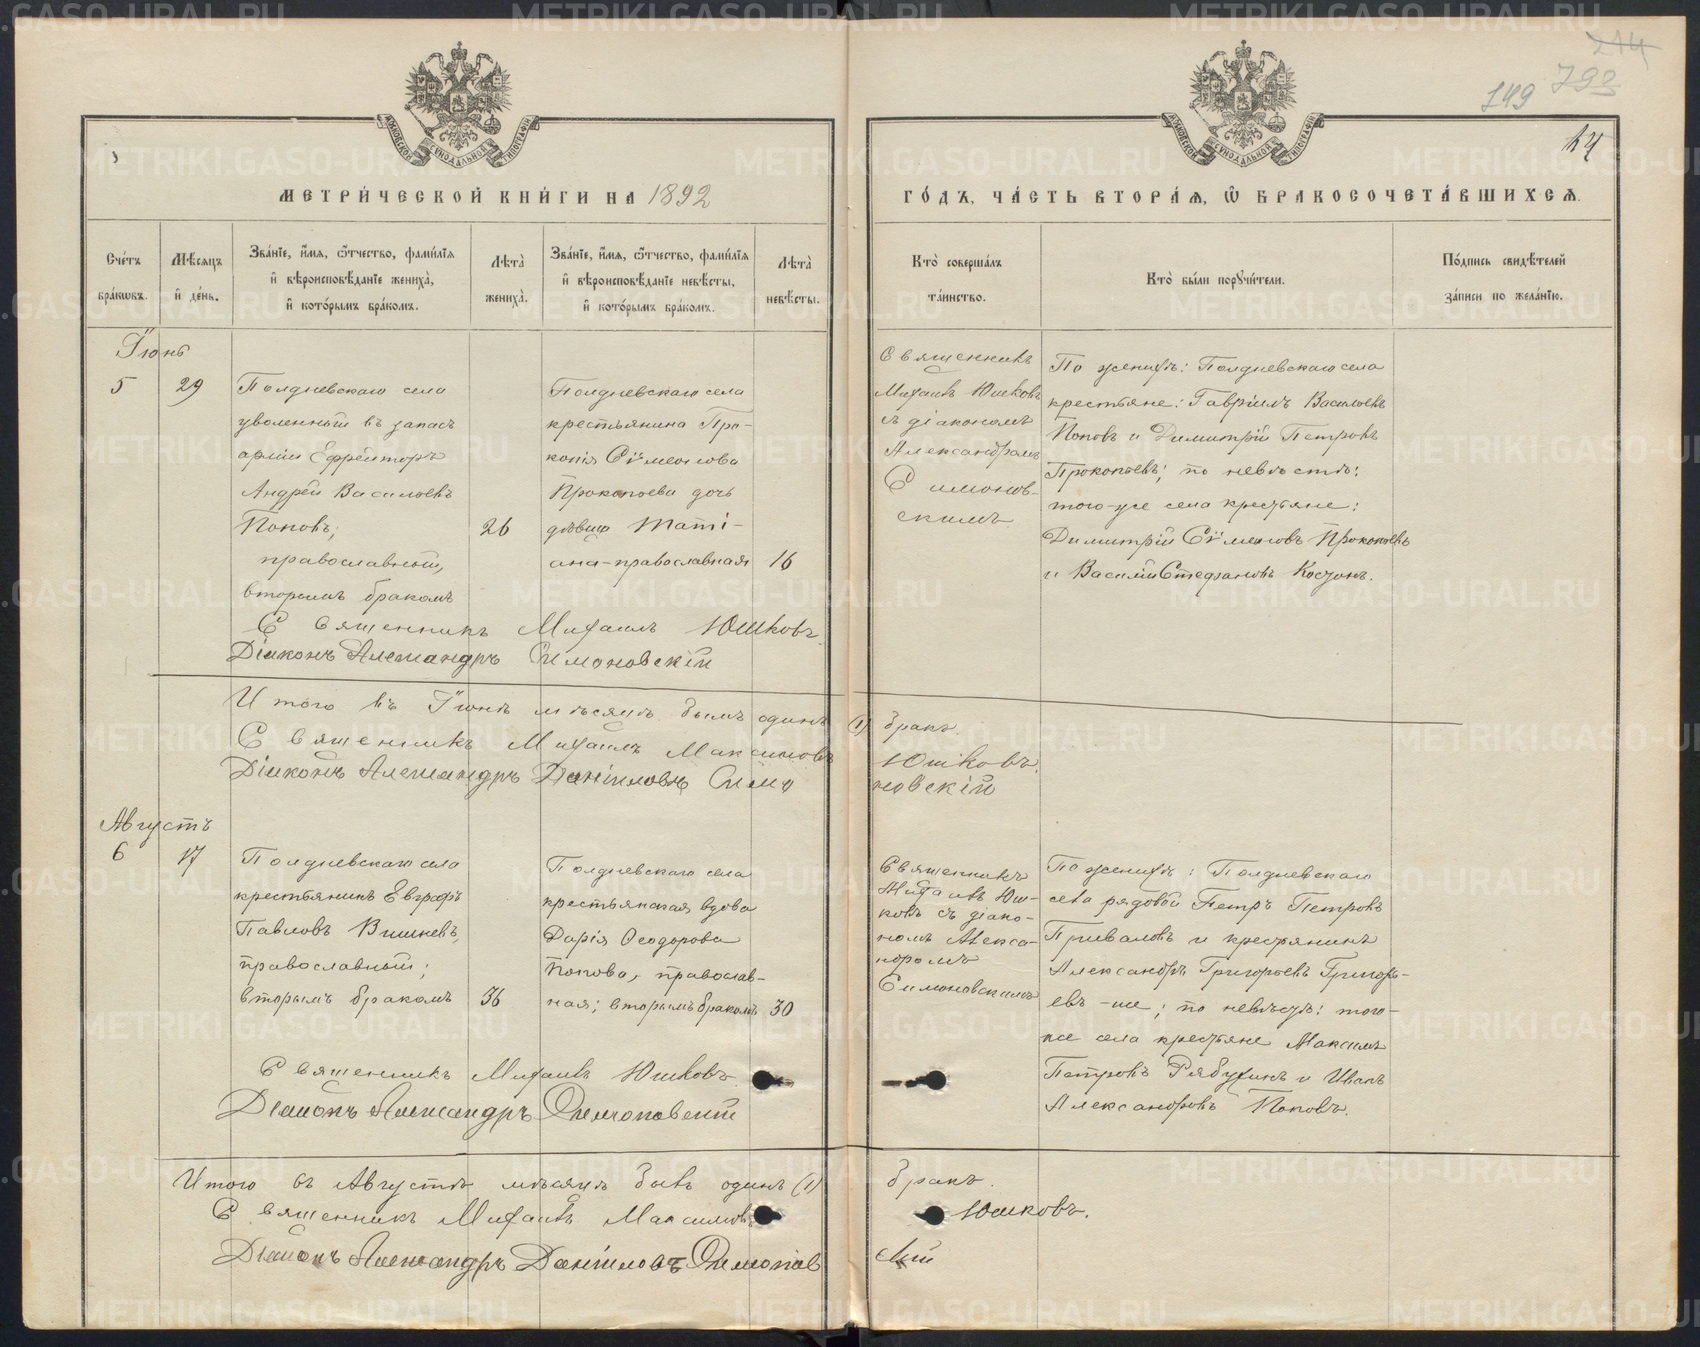 214
149 792
МЕТРИЧЕСКОЙ КНИГИ НА 1892
ГОДЪ, ЧАСТЬ ВТОРАѦ, Ѿ БРАКОСОЧЕТАВШИХСѦ.
Счетъ браковъ.
Мѣсяцъ и день.
Званіе, имя, отчество, фамилія
и вѣроисповѣданіе жениха,
и которымъ бракомъ.
Лѣта жениха.
Званіе, имя, отчество, фамилія
и вѣроисповѣданіе невѣсты,
и которымъ бракомъ.
Лѣта невѣсты.
Кто совершалъ
таинство.
Кто были поручители.
Подпись свидѣтелей
записи по желанію.
Іюнь
5 29
Полдневскаго села
уволенный въ запасъ
арміи Ефрейторъ
Андрей Васильевъ
Поповъ, 26
православный,
вторымъ бракомъ
Полдневскаго села
крестьянина Про-
копія Сѵмеонова
Прокопьева дочь
дѣвица Таті-
ана-православная 16
Священникъ
Михаилъ Юшковъ
съ діакономъ
Александромъ
Симонов-
скимъ
По женихѣ: Полдневскаго села
крестьяне: Гавріилъ Васильевъ
Поповъ и Димитрій Петровъ
Прокопьевъ; по невѣстѣ:
того-же села крестьяне:
Димитрій Сѵмеоновъ Прокопьевъ
и Василій Стефановъ
Священникъ Михаилъ Юшковъ
Діаконъ Александръ Симоновскій
Итого въ Іюнѣ мѣсяцѣ былъ одинъ (1) бракъ.
Священникъ Михаилъ Максимовъ Юшковъ.
Діаконъ Александръ Даніиловъ Симоновскій
Августъ
6 17
Полдневскаго села
крестьянинъ Евграфъ
Павловъ Вишневъ,
православный;
вторымъ бракомъ 36
Полдневскаго села
крестьянская вдова
Дарія Ѳеодорова
Попова, православ-
ная; вторымъ бракомъ 30
Священникъ
Михаилъ Юш-
ковъ съ діако-
номъ Алекса-
ндромъ
Симоновскимъ
По женихѣ: Полдневскаго
села рядовой Петръ Петровъ
Приваловъ и крестьянинъ
Александръ Григорьевъ Григорь-
евъ -же; по невѣстѣ: того-
же села крестьяне Максимъ
Петровъ Рябухинъ и Иванъ
Александровъ Поповъ.
Священникъ Михаилъ Юшковъ
Діаконъ Александръ Симоновскій
Итого въ Августѣ мѣсяцѣ былъ одинъ (1) бракъ.
Священникъ Михаилъ Максимовъ Юшковъ.
Діаконъ Александръ Даніиловъ Симоновскій
METRIKI.GASO-URAL.RU